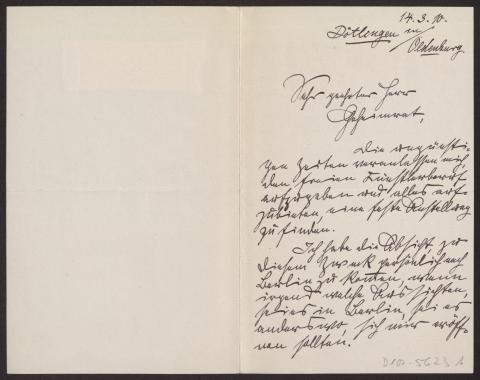 14.3.10.
Dötlingen in
Oldenburg
Sehr geehrter Herr
Geheimrat,
Die ungünsti-
gen Zeiten veranlassen mich,
den freien Künstlerberuf
aufzugeben und alles auf-
zubieten, eine feste Anstellung
zu finden.
Ich habe die Absicht, zu
diesem Zweck persönlich nach
Berlin zu kommen, wenn
irgend welche Aussichten,
sei es in Berlin, sei es
anderswo, sich mir eröff-
nen sollten.